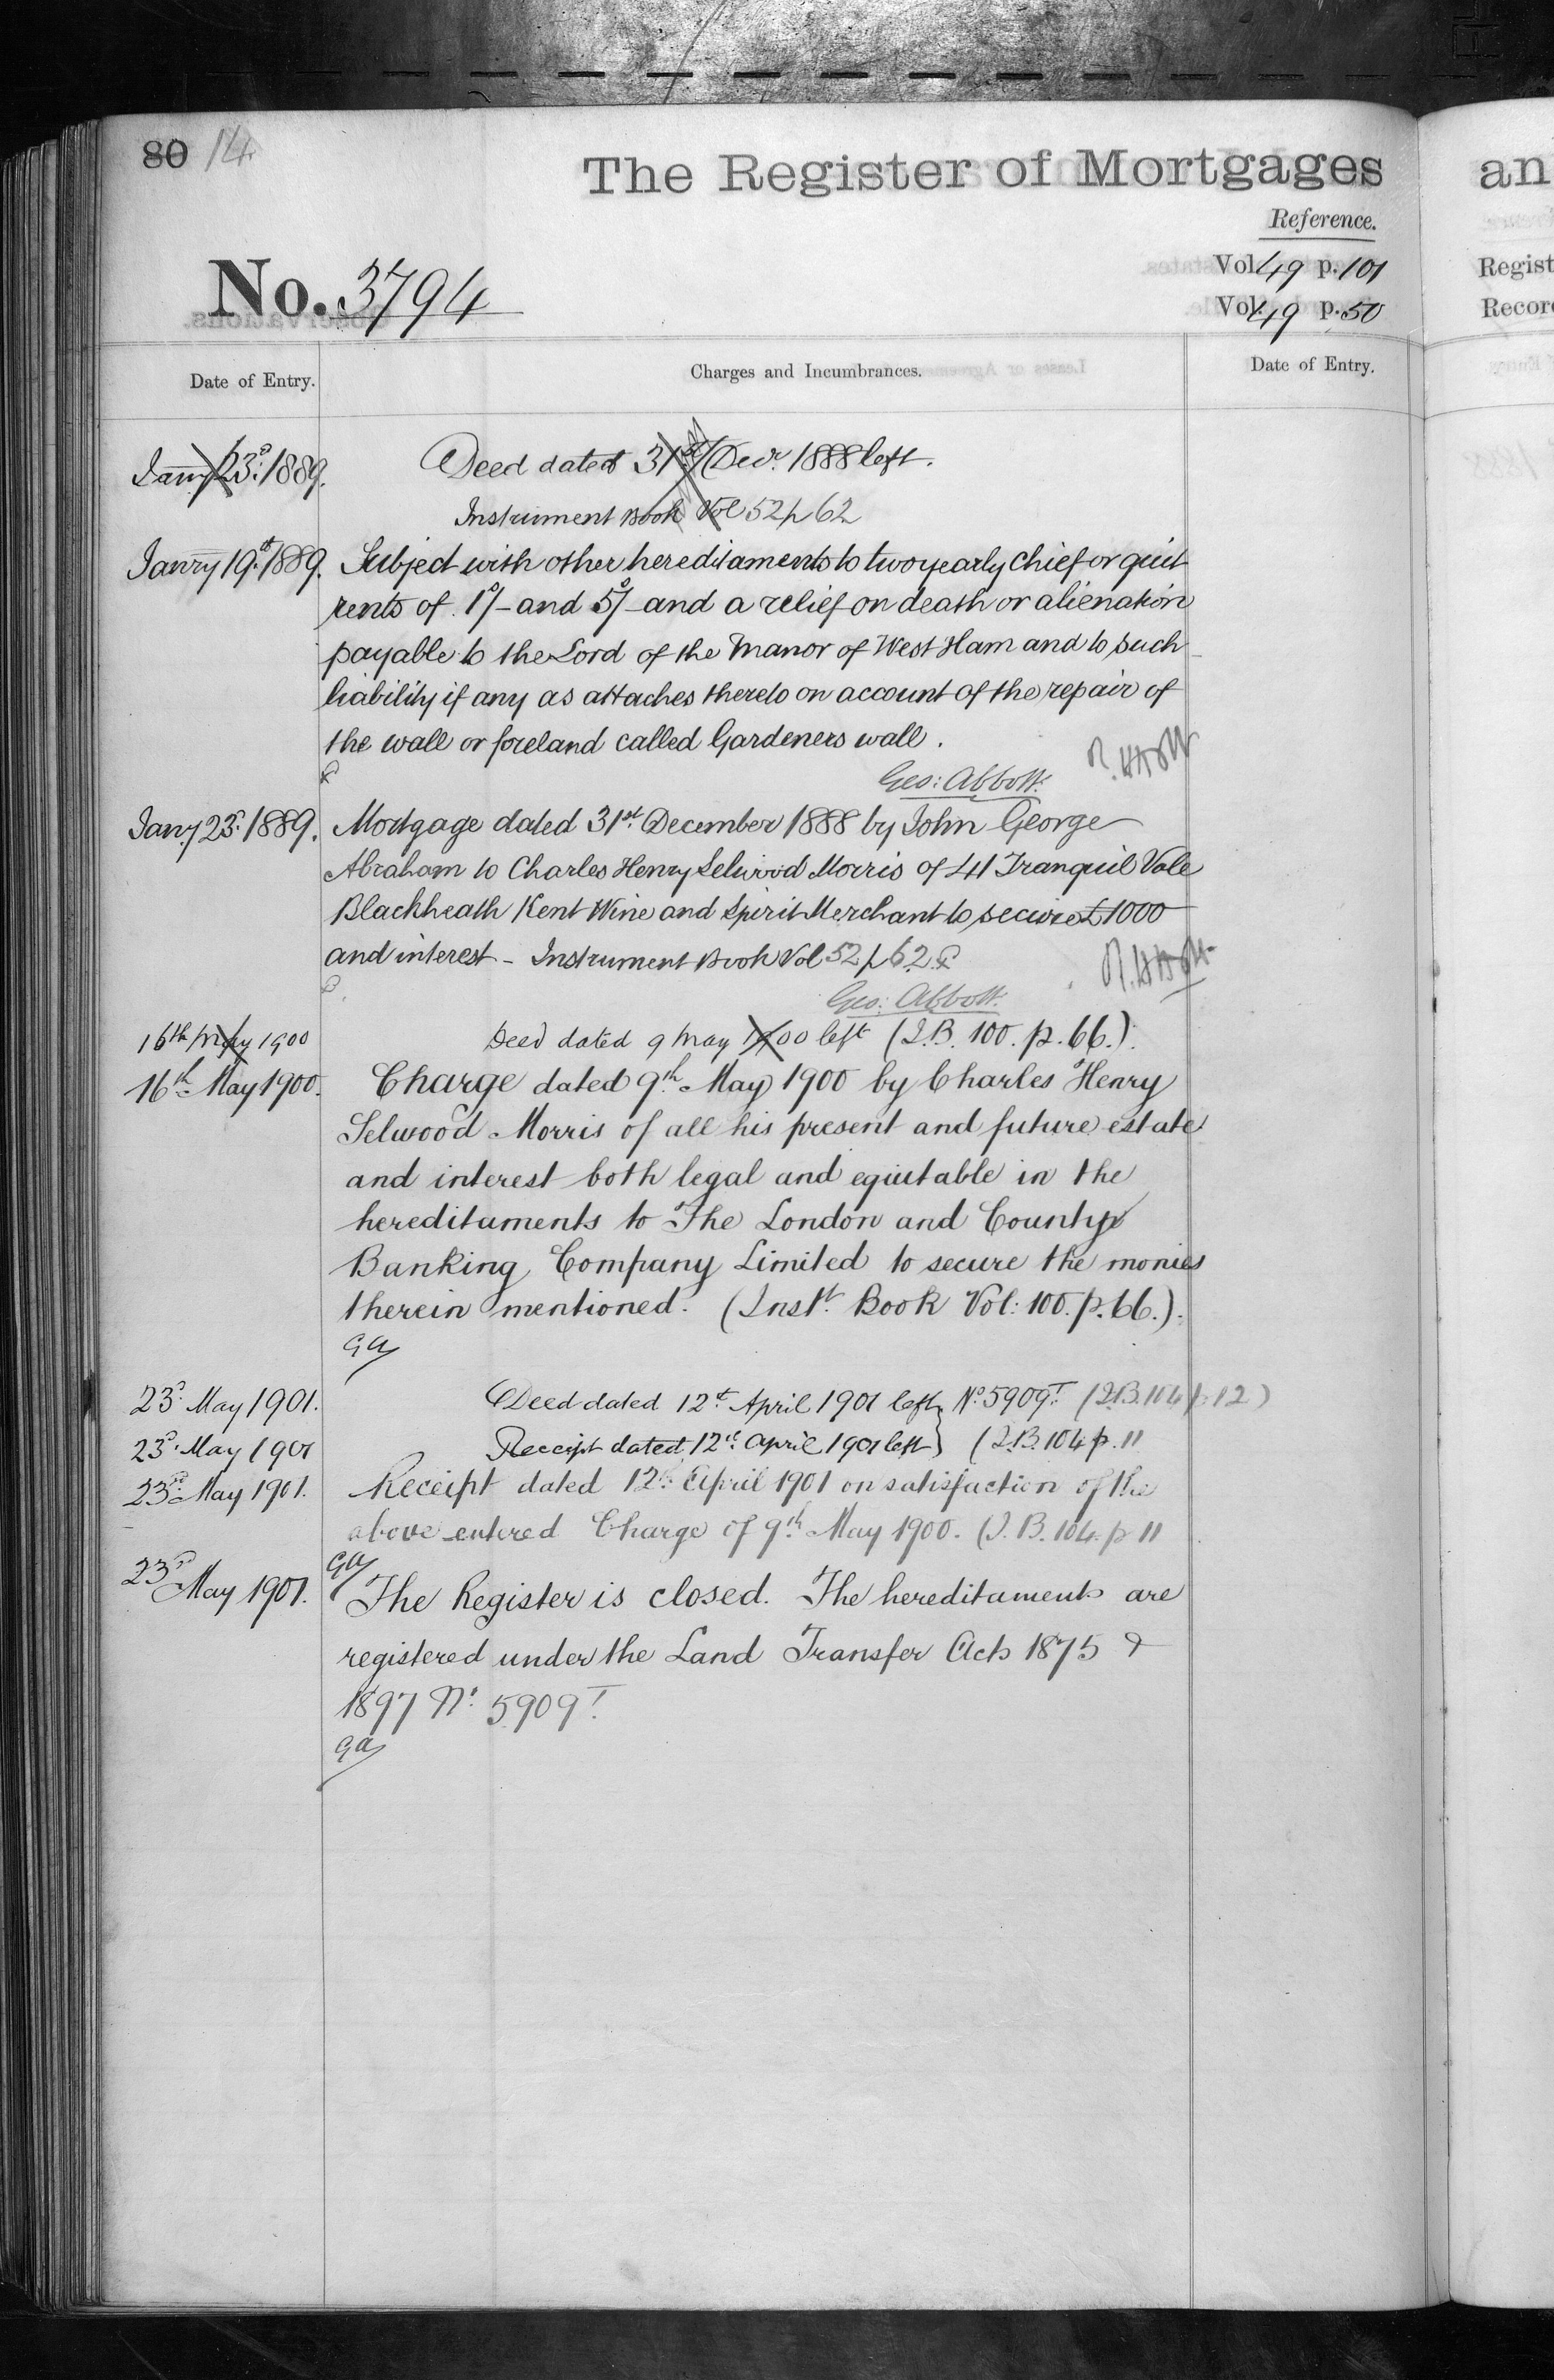 80 14
The Register of Mortgages
an
Reference.
Vol. 49 p. 101
Regist
No. 3794
Vol. 49 p. 50
Recor
Date of Entry.
Charges and Incumbrances.
Date of Entry.
Jany 23d. 1889.
Deed dated 31st Decr. 1888 left.
Instrument Book Vol 52 p 62
Janry 19th. 1889.
Subject with other hereditaments to two yearly Chief or quit
rents of 1s/- and 5s/- and a relief on death or alienation
payable to the Lord of the Manor of West Ham and to such
liability if any as attaches thereto on account of the repair of
the wall or foreland called Gardeners wall.
Geo: Abbott.
Jany 23d. 1889.
Mortgage dated 31st December 1888 by John George
Abraham to Charles Henry Selwood Morris of 41 Tranquil Vale
Blackheath Kent Wine and Spirit Merchant to secure £1000
and interest - Instrument Book Vol 52 p 62
Geo: Abbott.
16th May 1900
Deed dated 9 May 1900 left (I.B. 100. p. 66.)
16th May 1900.
Charge dated 9th May 1900 by Charles Henry
Selwood Morris of all his present and future estate
and interest both legal and equitable in the
hereditaments to The London and County
Banking Company Limited to secure the monies
therein mentioned. (Inst. Book Vol: 100. p. 66.)
GA
23d. May 1901.
Deed dated 12th April 1901 left No. 5909T. (I.B. 104 p. 12)
23d. May 1901
Receipt dated 12th April 1901 left} (I.B. 104 p. 11
23d. May 1901.
Receipt dated 12th April 1901 on satisfaction of the
above entered Charge of 9th May 1900. (I.B. 104. p 11
GA
23d May 1901.
The Register is closed. The hereditaments are
registered under the Land Transfer Acts 1875 &
1897 No. 5909T.
GA